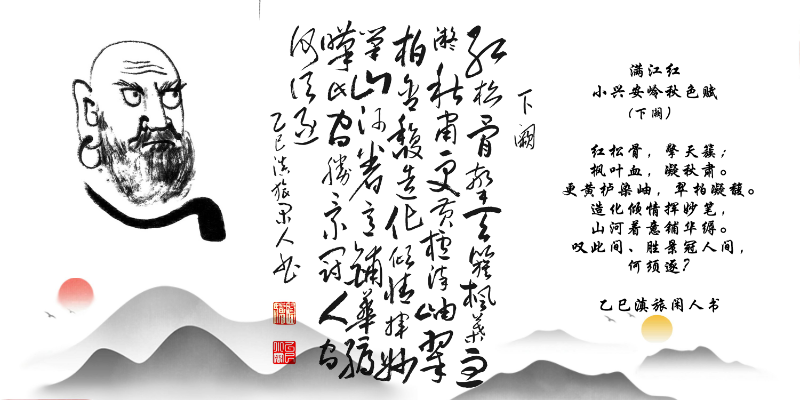 下阕
红松骨擎天簇枫叶血
凝秋肃更黄栌染岫翠
柏凝馥造化倾情挥妙
笔山河着意铺华缛
叹此间胜景冠人间
何须逐
乙巳滇旅闲人书
满江红
小兴安岭秋色赋
(下阕)
红松骨，擎天簇；
枫叶血，凝秋肃。
更黄栌染岫，翠柏凝馥。
造化倾情挥妙笔，
山河着意铺华缛。
叹此间、胜景冠人间，
何须逐？
乙巳滇旅闲人书